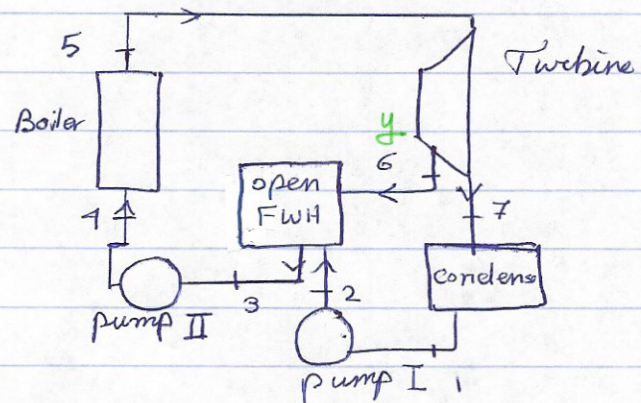 5
Turbine
Boiler
y
6
open
FWH
7
4
condens
3
2
pump II
pump I
1